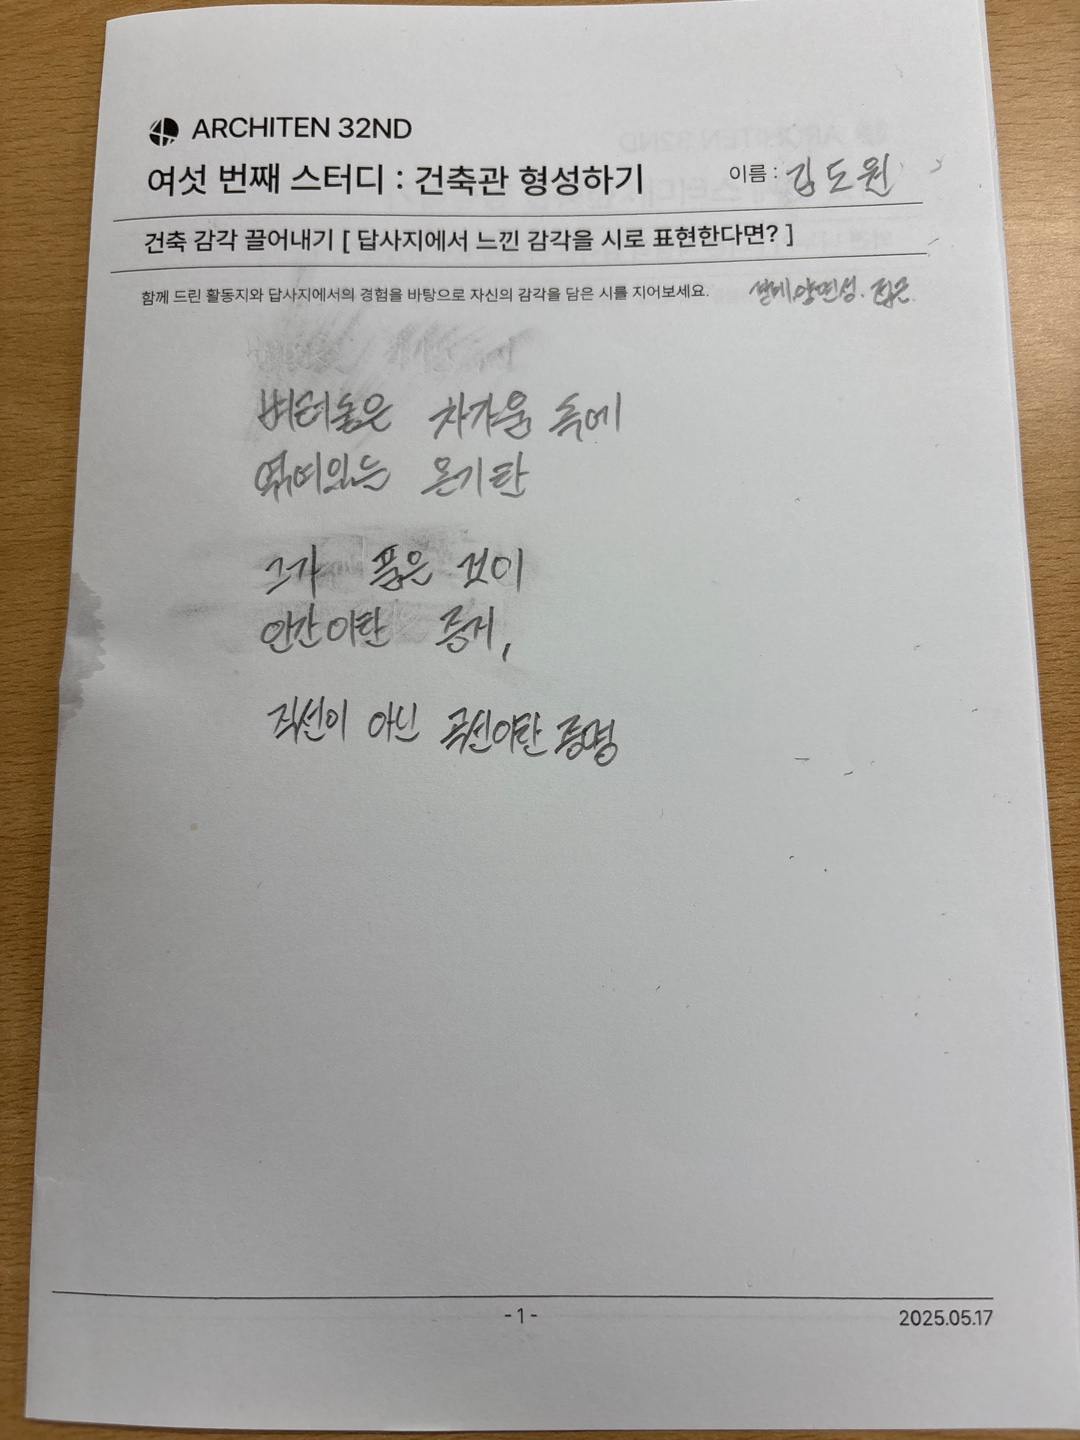 ARCHITEN 32ND
여섯 번째 스터디 : 건축관 형성하기
이름 : 김도원
건축 감각 끌어내기 [ 답사지에서 느낀 감각을 시로 표현한다면? ]
함께 드린 활동지와 답사지에서의 경험을 바탕으로 자신의 감각을 담은 시를 지어보세요.
차가움 속에
온기란
그가 품은 것이
인간이란 증거,
직선이 아닌 곡선이란 증명
- 1 -
2025.05.17